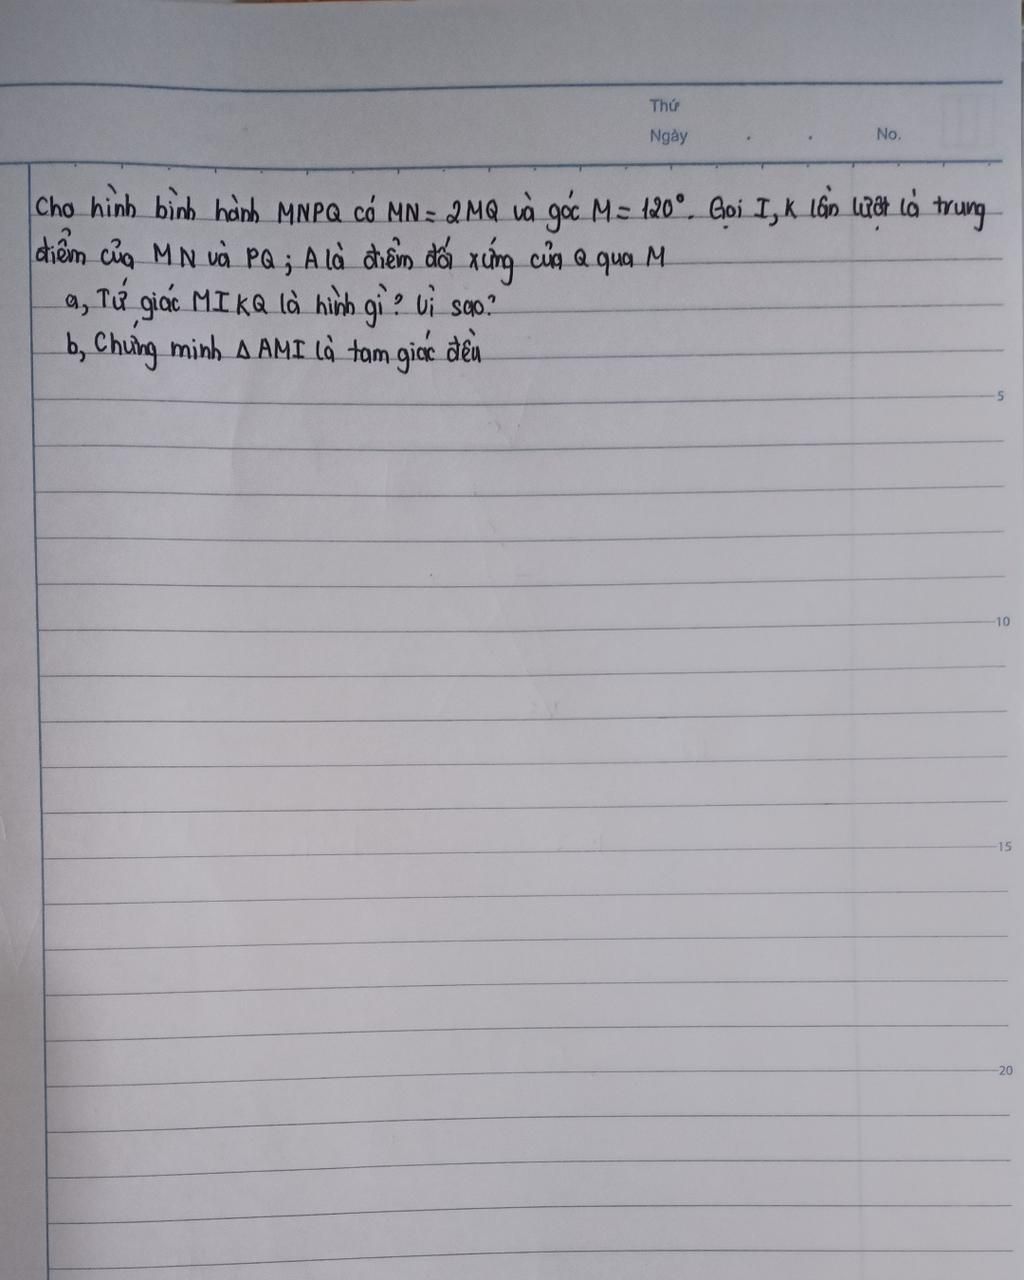 Thứ
Ngày . . No.
Cho hình bình hành MNPQ có MN = 2MQ và góc M = 120°. Gọi I, K lần lượt là trung
điểm của MN và PQ; A là điểm đối xứng của Q qua M
a, Tứ giác MIKQ là hình gì? Vì sao?
b, Chứng minh Δ AMI là tam giác đều
5
10
15
20